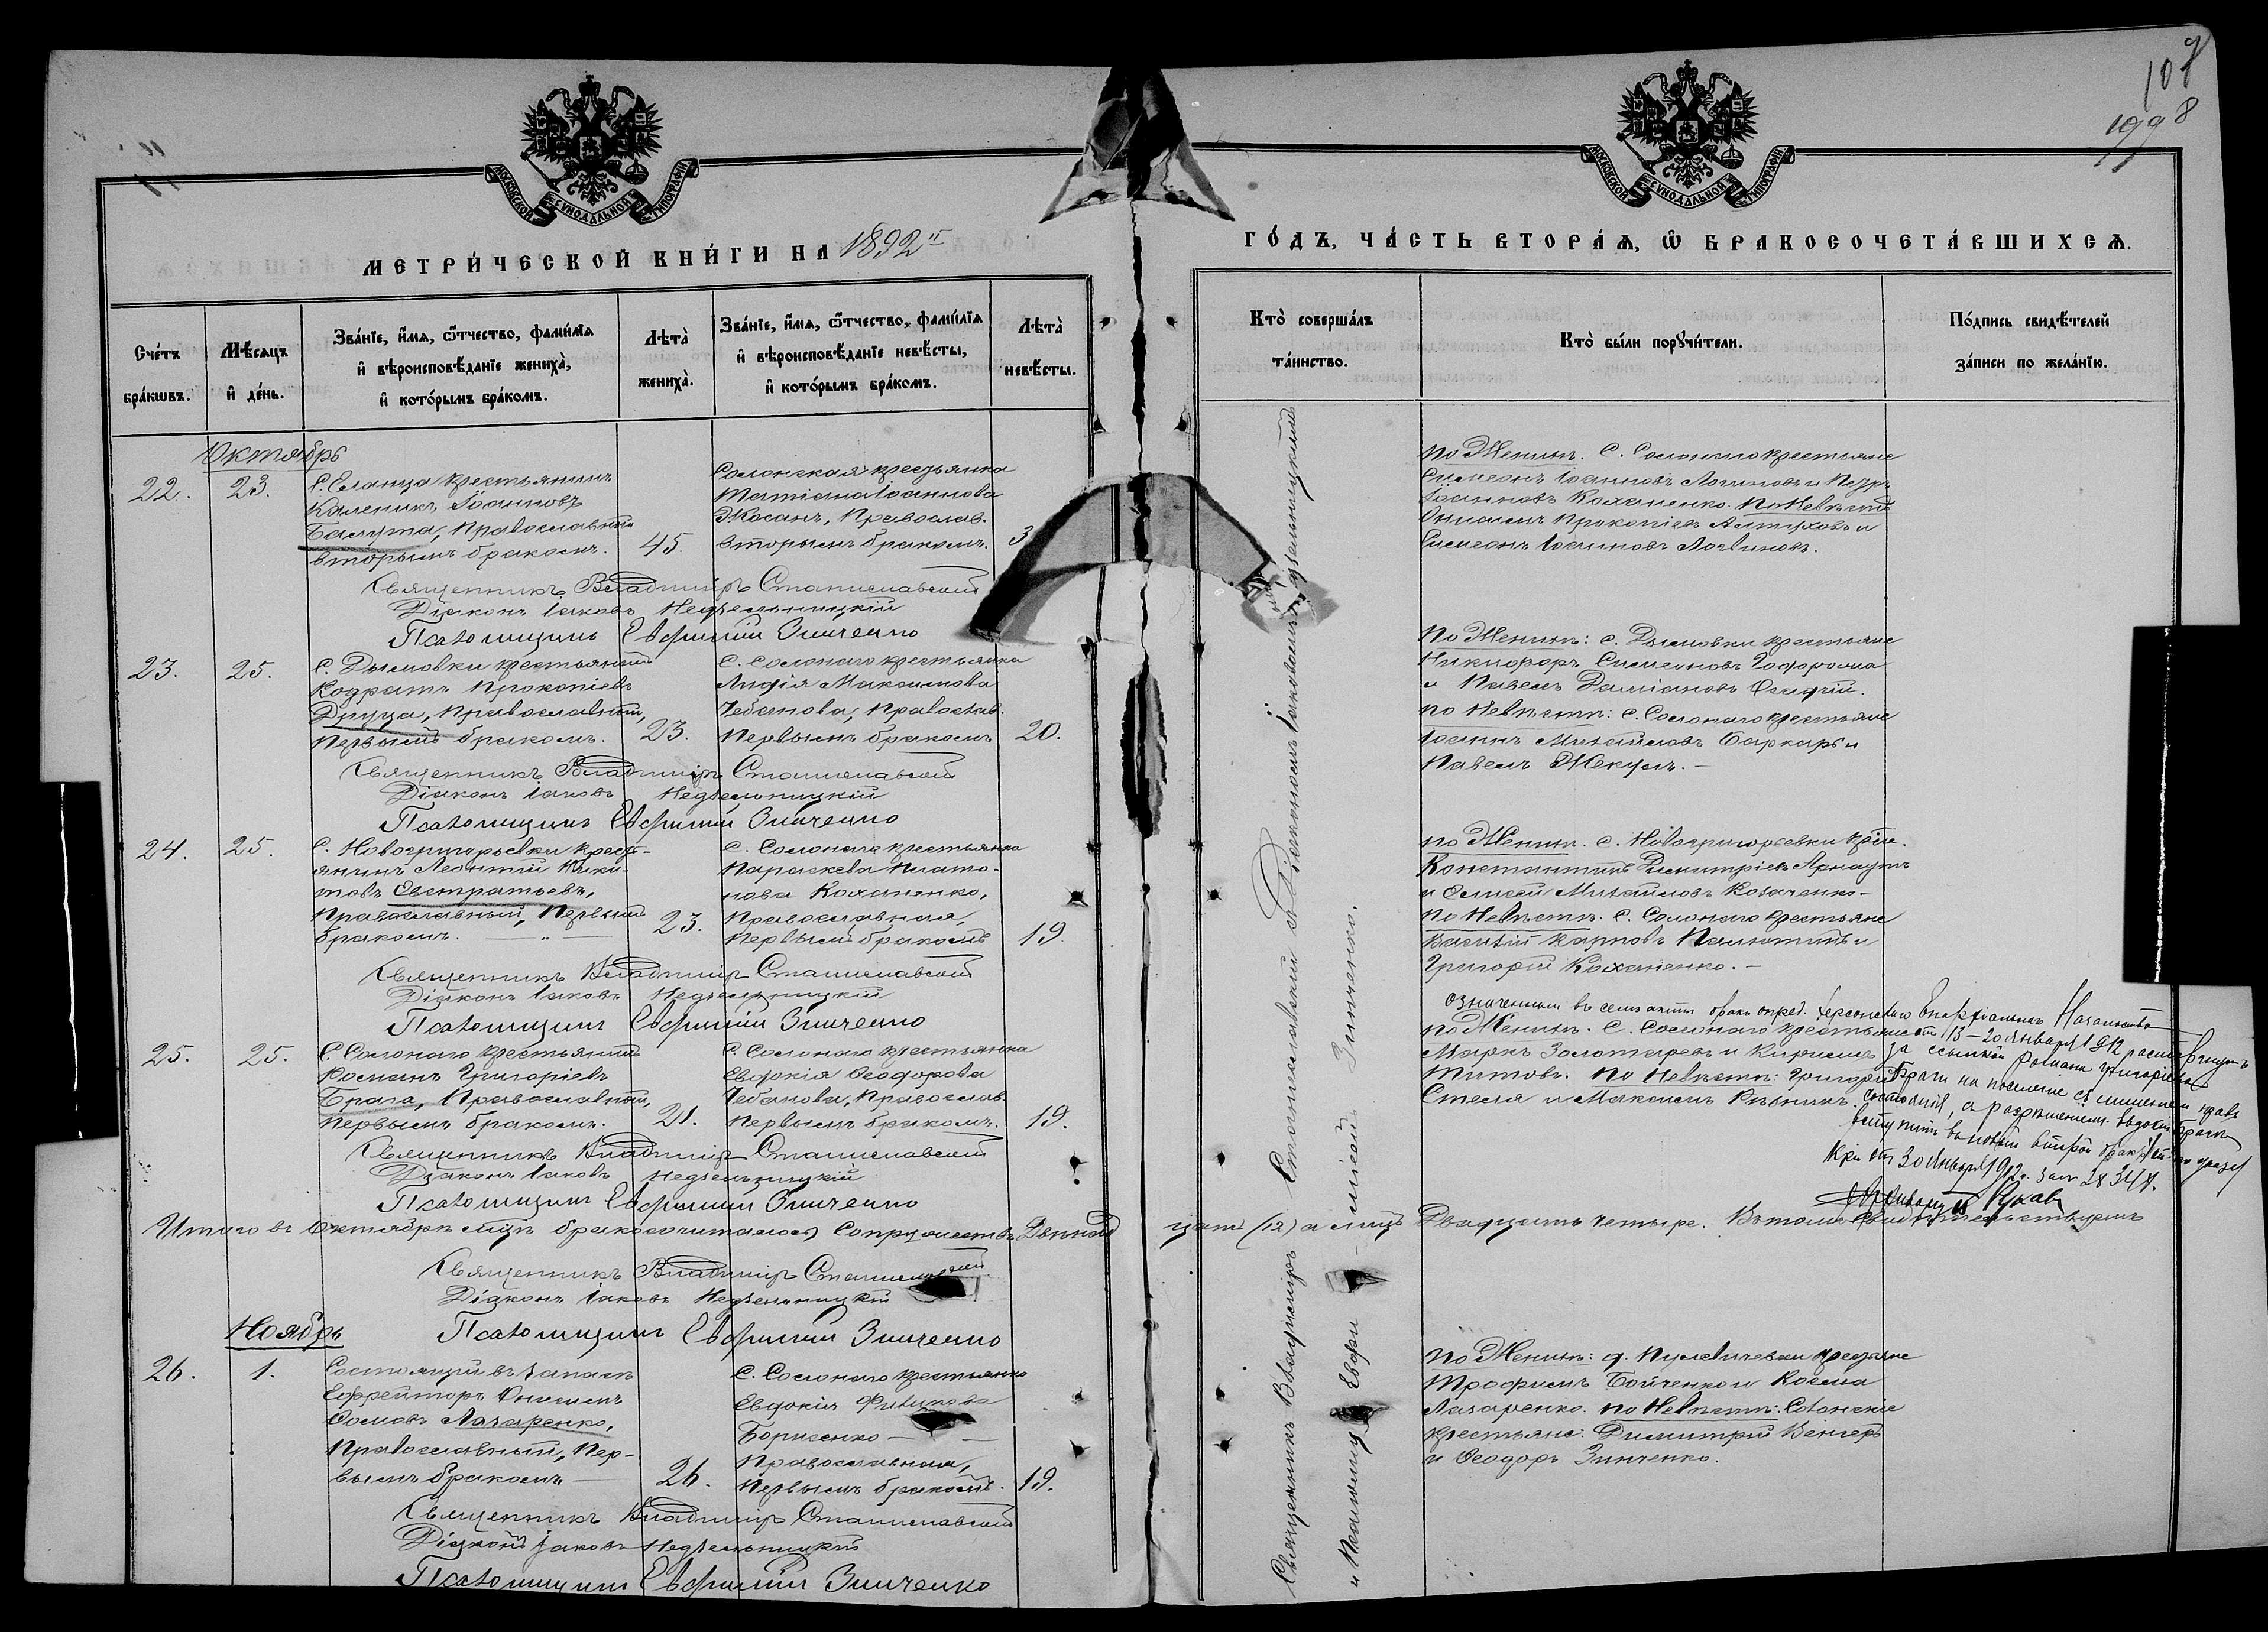 107
1998
МОСКОВСКОЙ СѴНОДАЛЬНОЙ ТИПОГРАФІИ
МОСКОВСКОЙ СѴНОДАЛЬНОЙ ТИПОГРАФІИ
МЕТРИ́ЧЕСКОЙ КНИ́ГИ НА 1892й
ГО́ДЪ, ЧА́СТЬ ВТОРА́Ѧ, Ѿ БРАКОСОЧЕТА́ВШИХСѦ.
Сче́тъ бра́кѡвъ.
Мѣ́сѧцъ и҆ де́нь.
Зва́нїе, и҆́мѧ, ѻ҆́тчество, фами́лїѧ
и҆ вѣроисповѣ́данїе жениха̀,
и҆ кото́рымъ бра́комъ.
Лѣта̀ жениха̀.
Зва́нїе, и҆́мѧ, ѻ҆́тчество, фами́лїѧ
и҆ вѣроисповѣ́данїе невѣ́сты,
и҆ кото́рымъ бра́комъ.
Лѣта̀ невѣ́сты.
Кто̀ соверша́лъ та́инство.
Кто̀ бы́ли порꙋчи́тели.
По́дпись свидѣ́телей за́писи по жела́нїю.
Октябрь
22. 23.
С. Еланца крестьянинъ
Каленикъ Іоанновъ
Балута, Православный
вторымъ бракомъ. 45.
Солонская крестьянка
Татіана Іоаннова
Жосанъ, Православ.
вторымъ бракомъ. 3
По Женихѣ. С. Солонаго крестьяне
Симеонъ Іоанновъ Логиновъ и Петръ
Іоанновъ Коханенко. По Невѣстѣ
Онисимъ Прокопіевъ Алтуховъ и
Симеонъ Іоанновъ Логвиновъ.
Священникъ Владиміръ Станиславскій
Діаконъ Іаковъ Недзельницкій
Псаломщикъ Евфимій Зинченко
23. 25.
С. Дымовки крестьянинъ
Кодратъ Прокопіевъ
Друца, Православный,
первымъ бракомъ. 23.
С. Солонаго крестьянка
Лидія Максимова
Чебанова, Православ.
первымъ бракомъ 20.
По Женихѣ: с. Дымовки крестьяне
Никифоръ Симеоновъ
и Павелъ Даміановъ
По Невѣстѣ: с. Солонаго крестьяне
Іоаннъ Михайловъ Баркарь и
Павелъ Жекулъ. –
Священникъ Владиміръ Станиславскій
Діаконъ Іаковъ Недзельницкій
Псаломщикъ Евфимій Зинченко
24. 25.
С. Новогригорьевки крест-
янинъ Леонтій Ники-
товъ Евстратьевъ,
Православный, Первымъ
бракомъ. — „ — 23.
С. Солонаго крестьянка
Параскева Плато-
нова Коханенко,
Православная,
первымъ бракомъ 19.
По Женихѣ. с. Новогригорьевки крест.
Константинъ Димитріевъ Арнаутъ
и Елисей Михайловъ Козаченко –
По Невѣстѣ. С. Солонаго крестьяне
Василій Карповъ Палютинъ и
Григорій Коханенко. –
Священникъ Владиміръ Станиславскій
Діаконъ Іаковъ Недзельницкій
Псаломщикъ Евфимій Зинченко
25. 25.
С. Солонаго крестьянинъ
Романъ Григоріевъ
Брага, Православный,
первымъ бракомъ. 21.
С. Солонаго крестьянка
Евдокія Ѳеодорова
Чебанова, Православ.
первымъ бракомъ. 19.
По Женихѣ. С. Солонаго крестьяне
Маркъ Золотаревъ и Кириллъ
Титовъ. По Невѣстѣ: Григорій
Стеля и Максимъ Рѣзникъ.
означенный въ семъ актѣ бракъ опред. Херсонскаго Епархіальнаго Начальства
отъ 13–20 Января 1912 расторгнутъ
за ссылкой Романа Григорьева
Браги на поселеніе съ лишеніемъ правъ
состоянія, съ разрѣшеніемъ Евдокіи Брага
вступить въ новый второй бракъ
отъ 30 Января 1912 г. за №
Священникъ Владиміръ Станиславскій
Діаконъ Іаковъ Недзельницкій
Псаломщикъ Евфимій Зинченко
Итого въ Октябрѣ мцѣ бракосочиталось Супружествъ Двѣнад
цать (12) а лицъ Двадцать четыре. Въ томъ свидѣтельствуемъ
Священникъ Владиміръ Станиславскій
Діаконъ Іаковъ Недзельницкій
Псаломщикъ Евфимій Зинченко
Ноябрь
26. 1.
Состоящій въ запасѣ
Ефрейторъ Онисимъ
Ѳомовъ Лазаренко,
Православный, Пер-
вымъ бракомъ — 26.
С. Солонаго крестьянка
Евдокія Филипова
Борисенко —
Православная,
первымъ бракомъ. 19.
По Женихѣ: д. Крестьяне
Трофимъ Бойченко и Косма
Лазаренко. По Невѣстѣ: Солонскіе
крестьяне: Димитрій Венгеръ
и Ѳеодоръ Зинченко.
Священникъ Владиміръ Станиславскій
Діаконъ Іаковъ Недзельницкій
Псаломщикъ Евфимій Зинченко
Священникъ Владиміръ Станиславскій съ Діакономъ Іаковомъ Недзельницкимъ
и Псаломщ. Евфи–міемъ Зинченко.